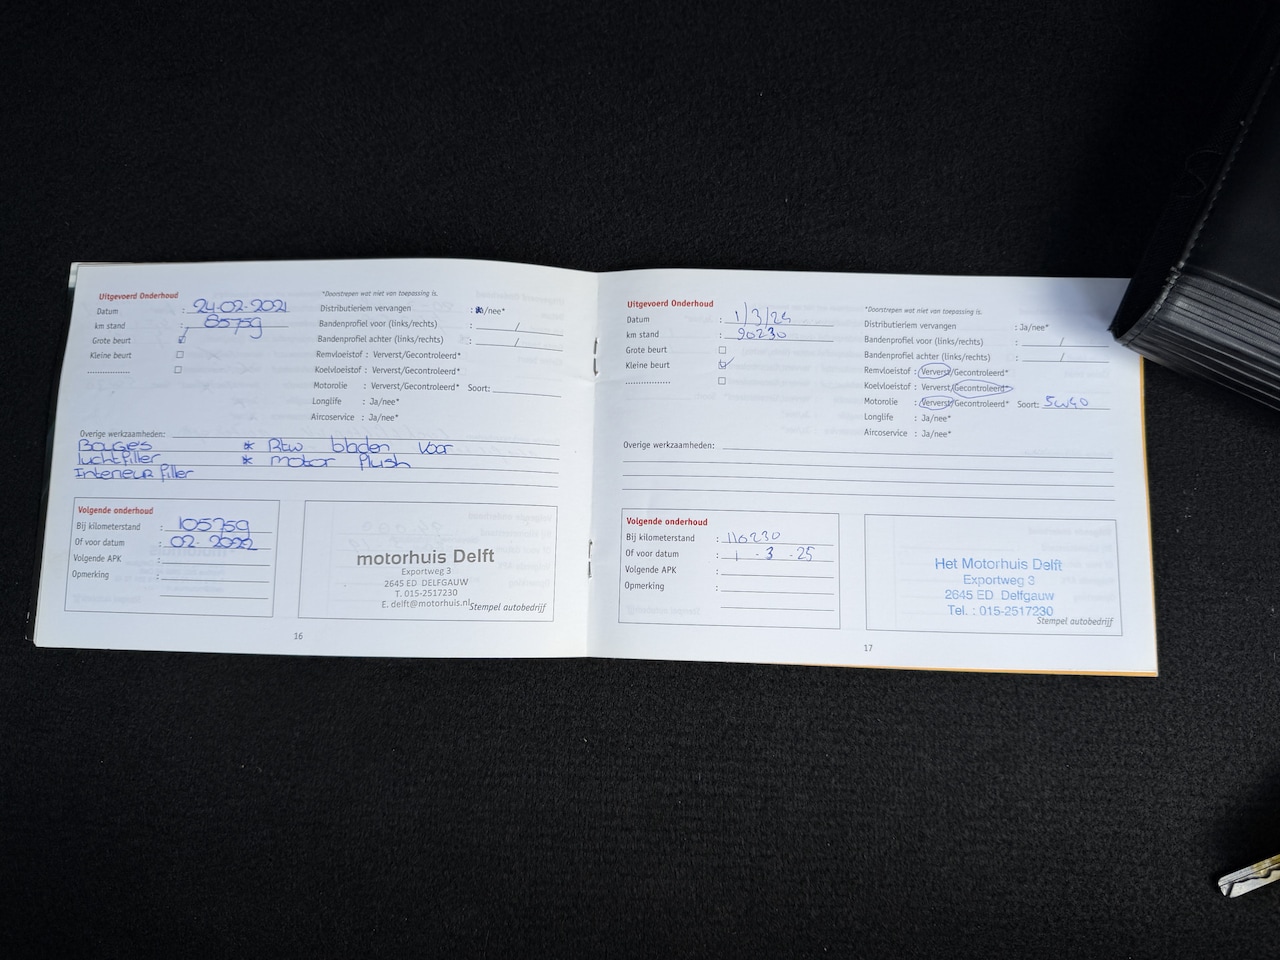 Uitgevoerd Onderhoud
*Doorstrepen wat niet van toepassing is.
Datum : 24-02-2021
km stand : 85759
Grote beurt
Kleine beurt
................
Distributieriem vervangen : Ja/nee*
Bandenprofiel voor (links/rechts) : /
Bandenprofiel achter (links/rechts) : /
Remvloeistof : Ververst/Gecontroleerd*
Koelvloeistof : Ververst/Gecontroleerd*
Motorolie : Ververst/Gecontroleerd* Soort:
Longlife : Ja/nee*
Aircoservice : Ja/nee*
Overige werkzaamheden:
Bougies * Rtw bladen voor
luchtfilter * motor flush
Interieur filter
Volgende onderhoud
Bij kilometerstand : 105759
Of voor datum : 02-2022
Volgende APK :
Opmerking :
motorhuis Delft
Exportweg 3
2645 ED DELFGAUW
T. 015-2517230
E. delft@motorhuis.nl
Stempel autobedrijf
16
Uitgevoerd Onderhoud
*Doorstrepen wat niet van toepassing is.
Datum : 1/3/24
km stand : 90230
Grote beurt
Kleine beurt
................
Distributieriem vervangen : Ja/nee*
Bandenprofiel voor (links/rechts) : /
Bandenprofiel achter (links/rechts) : /
Remvloeistof : Ververst/Gecontroleerd*
Koelvloeistof : Ververst/Gecontroleerd*
Motorolie : Ververst/Gecontroleerd* Soort: 5w40
Longlife : Ja/nee*
Aircoservice : Ja/nee*
Overige werkzaamheden:
Volgende onderhoud
Bij kilometerstand : 110230
Of voor datum : 1-3-25
Volgende APK :
Opmerking :
Het Motorhuis Delft
Exportweg 3
2645 ED Delfgauw
Tel. : 015-2517230
Stempel autobedrijf
17